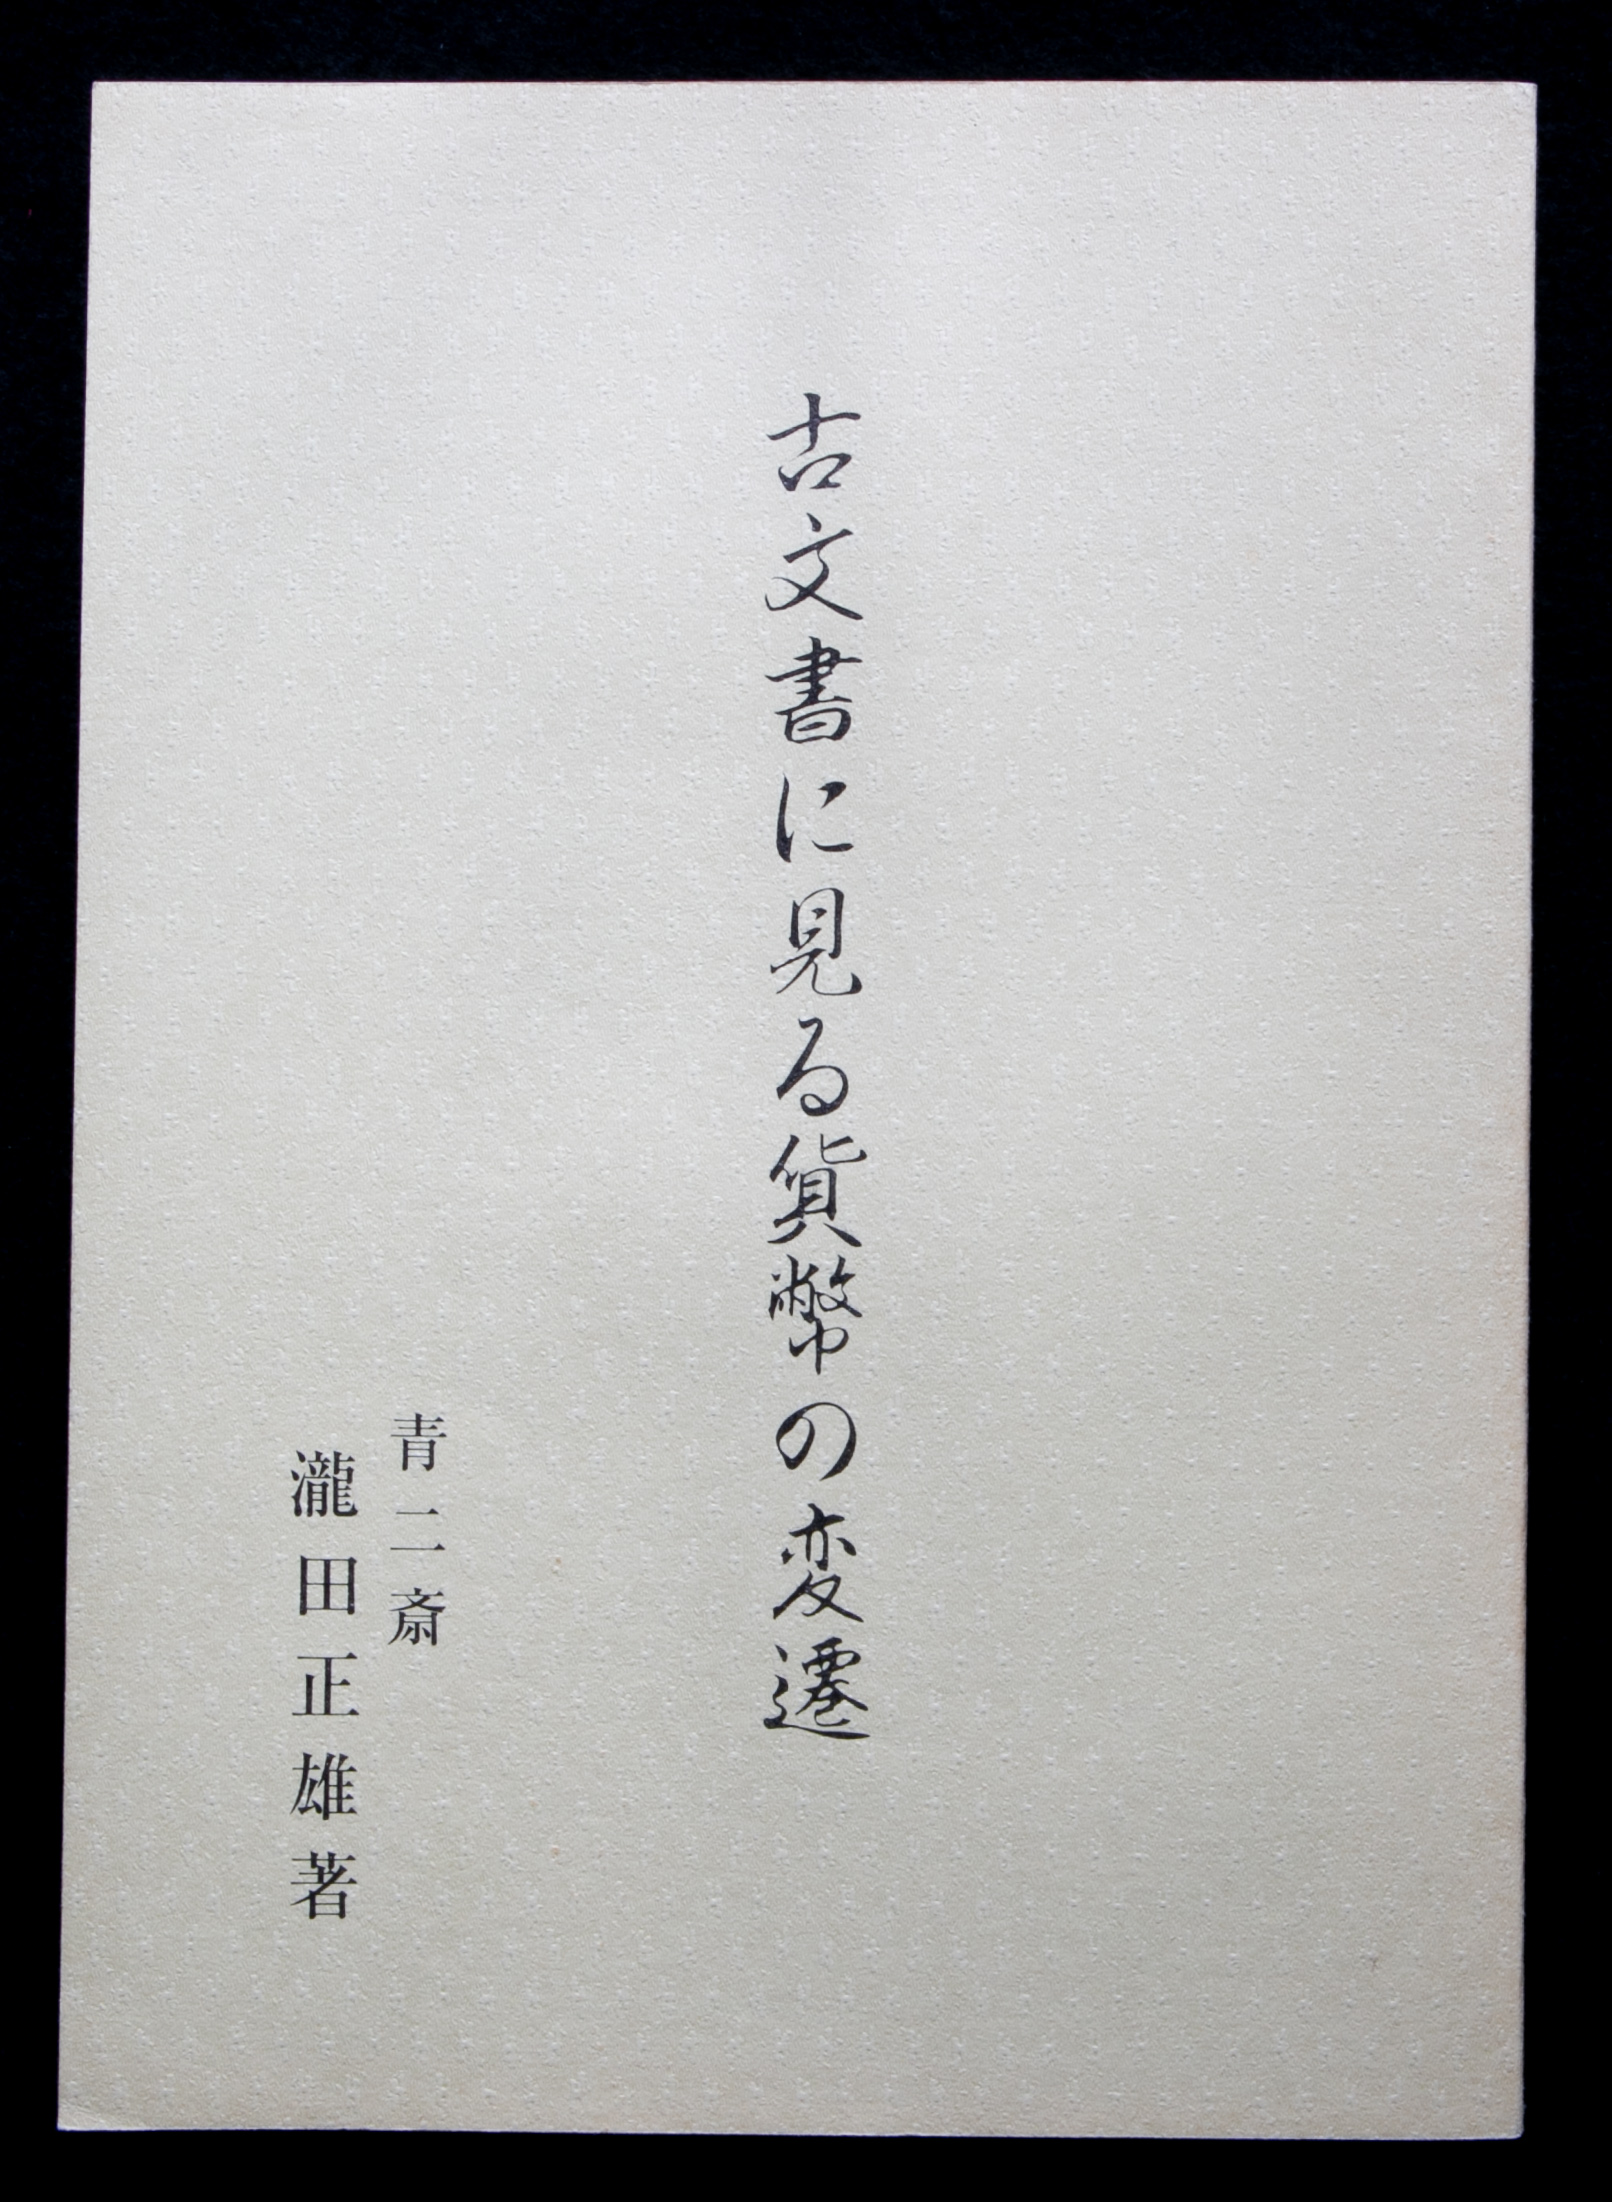 古文書に見る貨幣の変遷
青二斎
瀧田正雄著